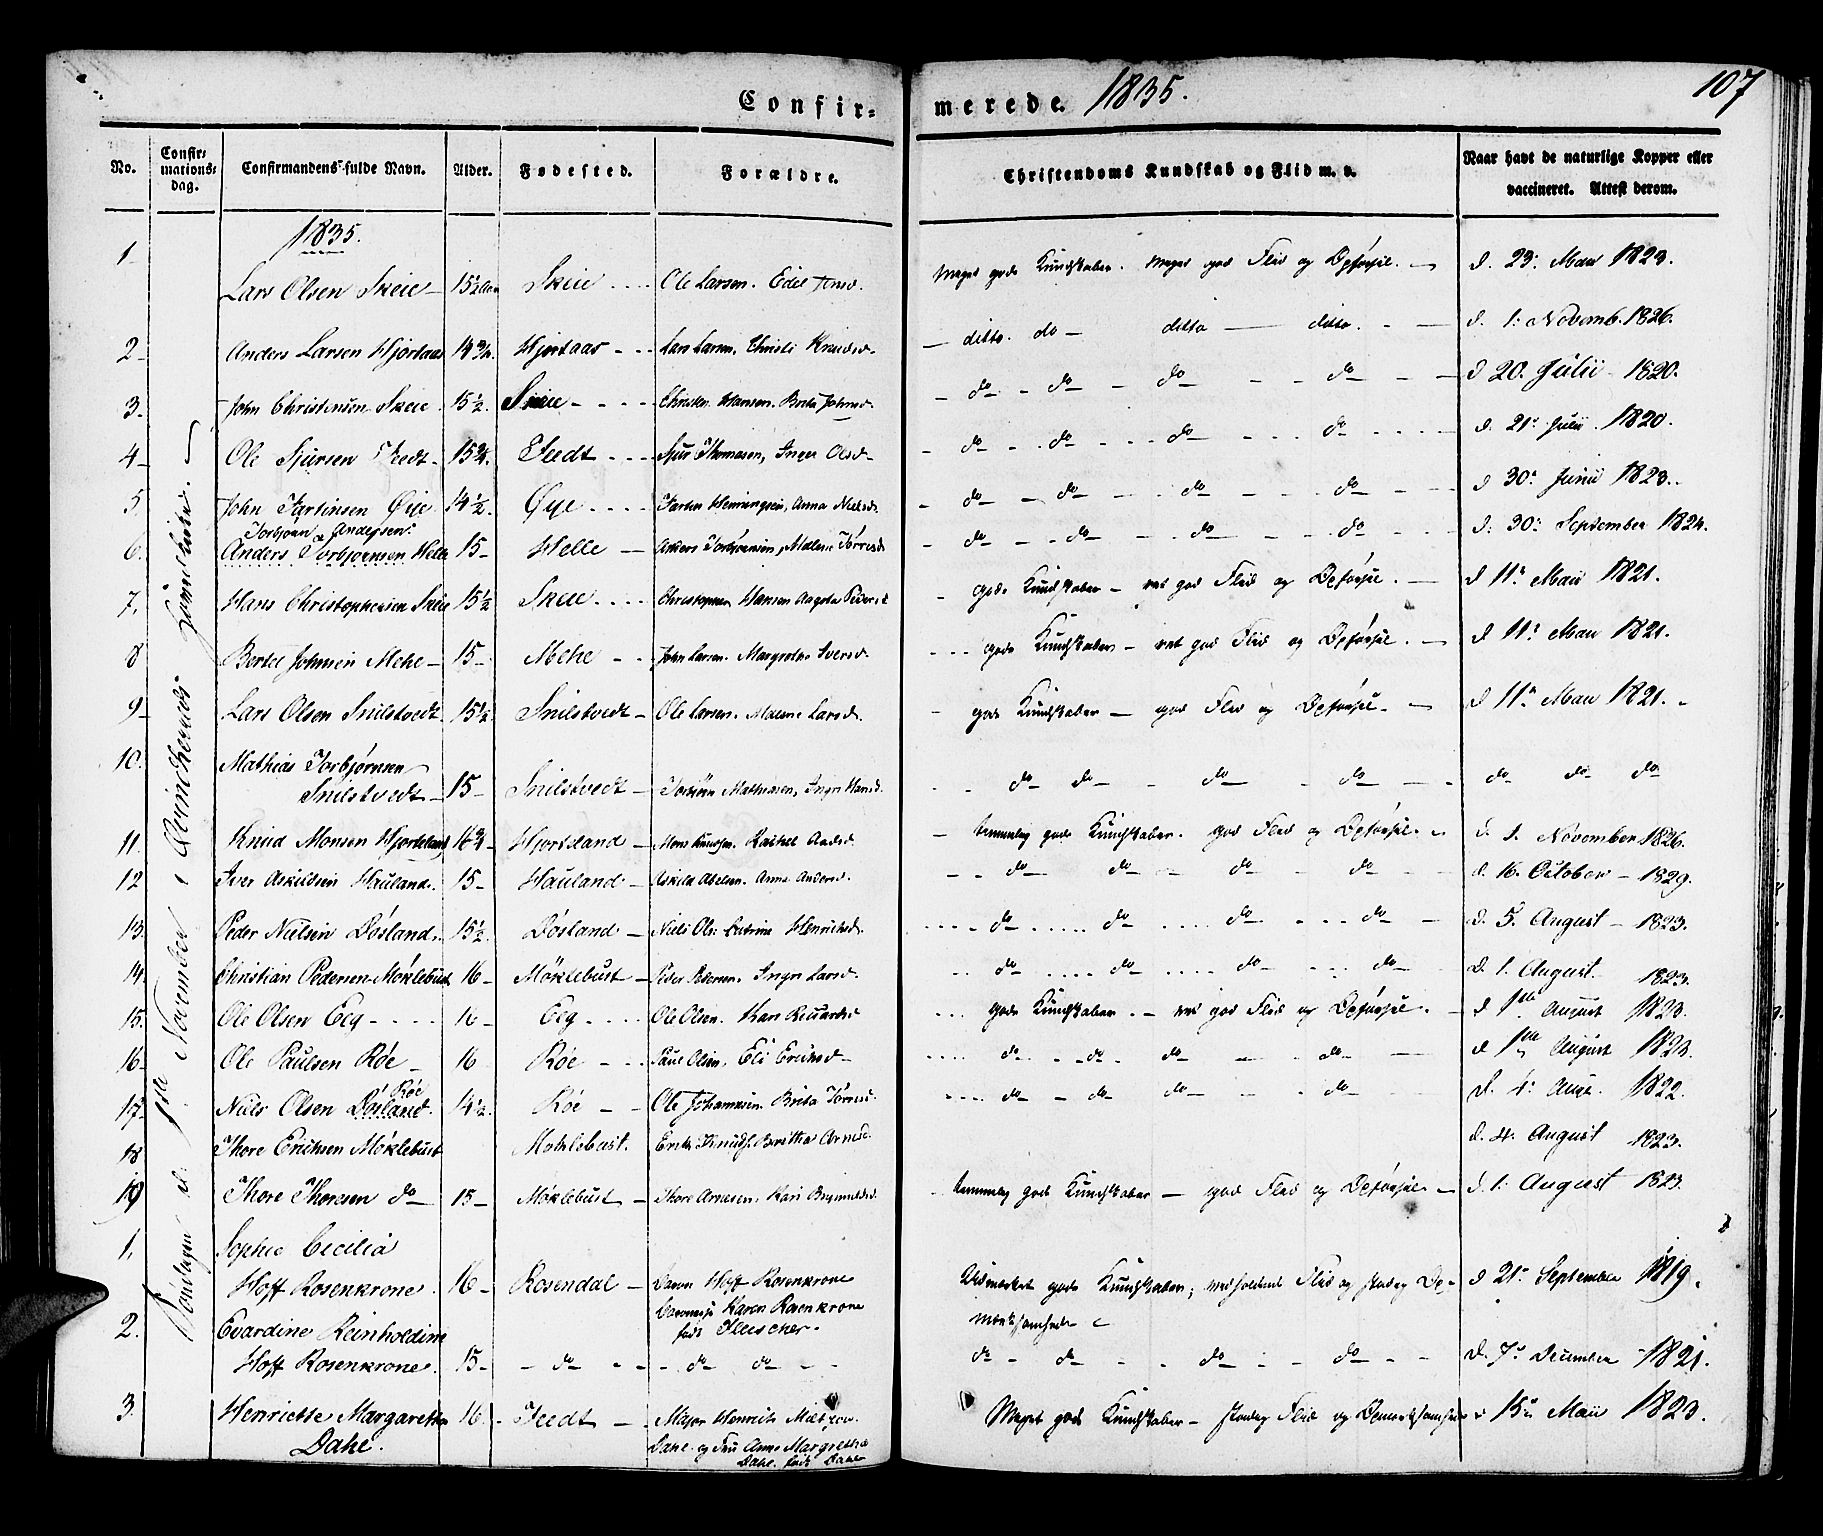 Confir- merede. 1835. 107
No. Confir-mations-dag. Confirmandens fulde Navn. Alder. Fødested. Forældre. Christendoms Kundskab og Flid m. v. Naar havt de naturlige Kopper eller vaccineret. Attest derom.
Søndagen d. 1ste November i Qvindherreds
1835.
1 Lars Olsen Skeie 15½ Aar Skeie Ole Larsen. Meget gode Kundskaber. Meget god Flid og Opførsel. d. 23: Maii 1823.
2 Anders Larsen Hjortaas 14 Hjortaas Lars Larsen. Christi Knudsd. ditto. do ditto ditto. d. 1: Novemb. 1826.
3. John Christensen Skeie 15½. Skeie Hansen. Brita Johnsd. do do do do d 20. Julii 1820.
4 Ole Sjursen 15 Sjur Thomasen, Inger Olsd. do do do do d. 21: Julii 1820.
5. John Øye 14½. Øye Henningsen, Anna Nielsd. do do do do d 30: Junii 1823.
Torbjørn Andersen
6. Anders Torbjørnsen Helle 15 Helle Anders Torbjørnsen, Malene Tørresd do do do do d: 30: September 1824.
7, Hans Christophersen Skeie 15½ Skeie Christopher Hansen Pedersd gode Kundskaber ret god Flid og Opførsel. d 11: Maii 1821.
8 Bertel Johnsen Mehe 15 Mehe John Larsen. Margrethe Iversd. gode Kundskaber ret god Flid og Opførsel. d 11: Maii 1821.
9 Lars Olsen Snilstvedt 15½ Snilstvedt Ole Larsen. Malene Larsd. gode Kundskaber god Flid og Opførsel. d 11: Maii 1821.
10. Mathias Torbjørnsen
Snilstvedt 15 Snilstvedt Torbjørn Mathiasen, Inger Hansd. do do do do do do do
11. Knud Monsen Hjortsland 16¾ Hjortsland Mons Knudsen. Rachel gode Kundskaber. god Flid og Opførsel d. 1. November 1826.
12 Iver Askildsen Hauland. 15 Hauland Askild Anna Andersd. do do do do d. 16. October 1829.
13. Peder Nielsen Døsland. 15½. Døsland Niels Ols: Henrichsd. do do do do d. 5. August 1823.
14. Christian Pedersen Møklebust 16 Møklebust Peder Pedersen. Inger Larsd. do do do do d. 1. August 1823.
15. Ole Olsen Eeg 16 Eeg Ole Olsen. Kari gode Kundskaber. ret god Flid og Opførsel. d 1ste August 1823.
16 Ole Paulsen Røe 16 Røe Paul Olsen, Eli Erichsd do do do do d 1ste August 1823.
17 Niels Olsen Døsland. Røe 14½. Røe Ole Johannesen. Brita Tørresd. do do do do d. 1: Aug. 1822.
18 Thore Erichsen Møklebust Møklebust. Erich Knuds. Berithe Arnesd. d. 4. August 1823.
19 Thore Thoresen do 15 Møklebust Thore Arnesen. Kari Brynnildsd. gode Kundskaber god Flid og Opførsel d. 1: August 1823.
1, Sophie Cecilia
Hoff Rosenkrone. 16 Rosendal Baron Hoff Rosenkrone Baronesse Karen Rosenkrone født Fleischer. gode Kundskaber, Flid og d 21: September 1819.
2. Evardine Reinholdine
Hoff Rosenkrone. 15 do do do do do do do d. 7: December 1821.
3. Henriette Margarethe
Dahl. 16 Major Henrich Dahl og Fru Anna Margrethe Dahl. født Dahl Meget gode Kundskaber Flid og 15: Maii 1823.